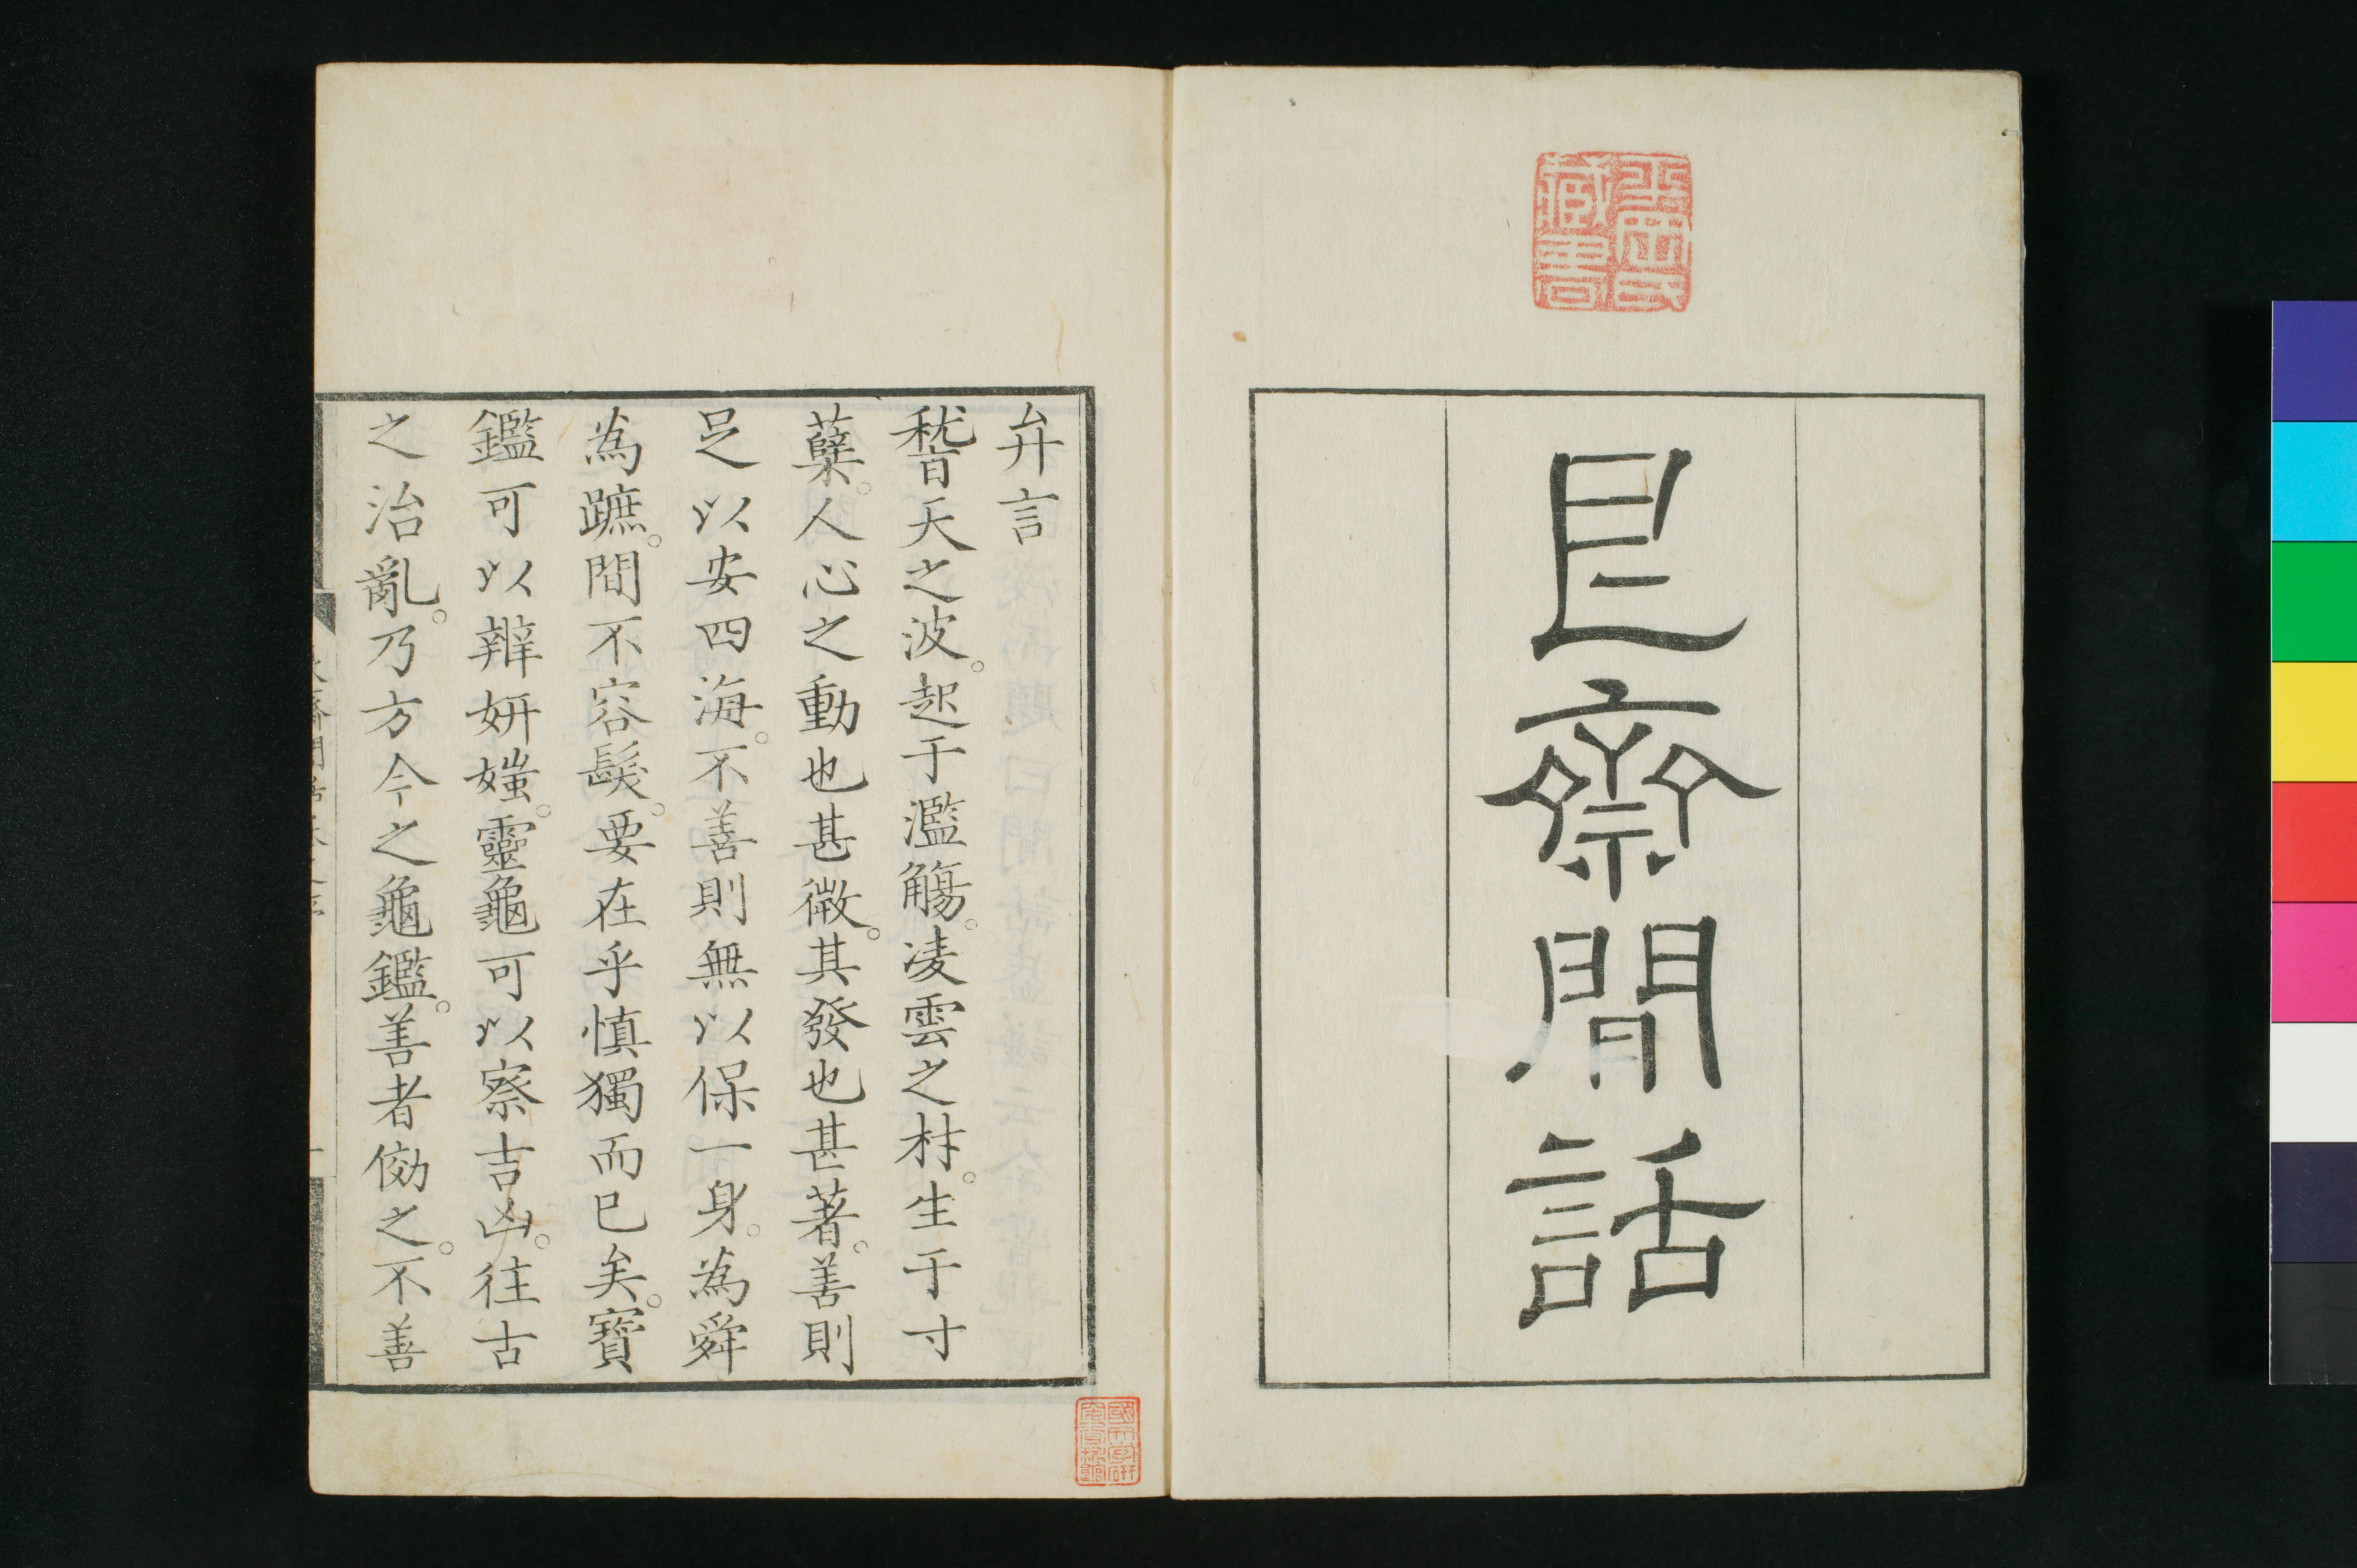 艮齋閒話
藏書
弁言
稽天之波。起于濫觴。凌雲之材。生于寸
蘖。人心之動也甚微。其發也甚著。善則
足以安四海。不善則無以保一身。為舜
為蹠。間不容髮。要在乎慎獨而已矣。寶
鑑可以辨妍媸。靈龜可以察吉凶。往古
之治亂。乃方今之龜鑑。善者俲之。不善
國文學研究資料館